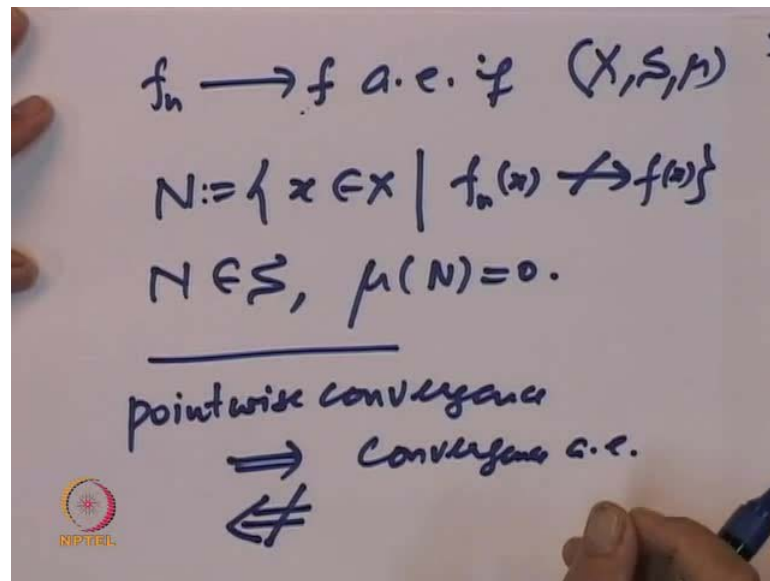 fₙ ⟶ f a.e. if (X, S, μ)
N := { x ∈ X | fₙ(x) ↛ f(x)}
N ∈ S, μ(N) = 0.
pointwise convergence
⟹ Convergence a.e.
⇍
NPTEL